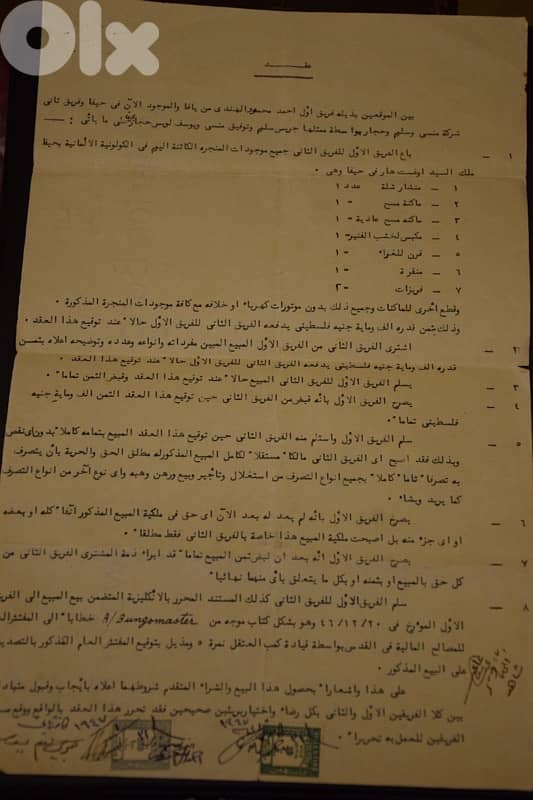 olx
عقـــــــــد
بين الموقعين بذيله فريق اول احمد محمود الهندى من يافا والموجود الآن فى حيفا وفريق ثانى
شركة منسى وسليم وحجار بواسطة ممثلها جريس سليم وتوفيق منسى ويوسف لويس حجار على ما يأتى :ـ
١ ــ باع الفريق الاول للفريق الثانى جميع موجودات المنجره الكائنة اليوم فى الكولونية الالمانية بحيفا
ملك السيد اوفست هار فى حيفا وهى .
١ ــ منشار شلة عدد ١
٢ ــ ماكنة مسح -- ١
٣ ــ ماكنه مسح عادية -- ١
٤ ــ مكبس لخشب الفنير -- ١
٥ ــ فرن للغراء -- ١
٦ ــ منقرة -- ١
٧ ــ فريزات -- ٢
وقطع اخرى للماكنات وجميع ذلك بدون موتورات كهرباء او خلافه مع كافة موجودات المنجرة المذكورة .
وذلك بثمن قدره الف وماية جنيه فلسطينى يدفعه الفريق الثانى للفريق الاول حالا عند توقيع هذا العقد .
٢ ــ اشترى الفريق الثانى من الفريق الاول المبيع المبين مفرداته وانواعه وعدده وتوضيحه اعلاه بثمن
قدره الف وماية جنيه فلسطينى يدفعه الفريق الثانى للفريق الاول حالا عند توقيع هذا العقد .
٣ ــ يسلم الفريق الاول للفريق الثانى المبيع حالا عند توقيع هذا العقد وقبض الثمن تماما .
٤ ــ يصرح الفريق الاول بأنه قبض من الفريق الثانى حين توقيع هذا العقد الثمن الف وماية جنيه
فلسطينى تماما .
٥ ــ سلم الفريق الاول واستلم منه الفريق الثانى حين توقيع هذا العقد المبيع بتمامه كاملا بدون اى نقص
وبذلك فقد اصبح اى الفريق الثانى مالكا مستقلا لكامل المبيع المذكور له مطلق الحق والحرية بأن يتصرف
به تصرفا تاما كاملا بجميع انواع التصرف من استغلال وتأجير وبيع ورهن وهبه واى نوع آخر من انواع التصرف
كما يريد ويشاء .
٦ ــ يصرح الفريق الاول بأنه لم يعد له بعد الآن اى حق فى ملكية المبيع المذكور آنفا كله او بعضه
او اى جزء منه بل اصبحت ملكية المبيع هذا خاصة بالفريق الثانى فقط مطلقا .
٧ ــ يصرح الفريق الاول انه بعد ان قبض ثمن المبيع تماما قد ابراء ذمة المشترى الفريق الثانى من
كل حق بالمبيع او بثمنه او بكل ما يتعلق بأى منهما نهائيا .
٨ ــ سلم الفريق الاول للفريق الثانى كذلك المستند المحرر بالانكليزية المتضمن بيع المبيع الى الفريق
الاول المؤرخ فى ٤٦/١٢/٢٠ وهو بشكل كتاب موجه من A/Bungomaster خطابا الى المفتش
للمصالح المالية فى القدس بواسطة قيادة كمب المعتقل نمرة ٥ ومذيل بتوقيع المفتش العام المذكور بالتصديق
على البيع المذكور .
على هذا واشعارا بحصول هذا البيع والشراء المتقدم شروطهما اعلاه بايجاب وقبول
بين كلا الفريقين الاول والثانى بكل رضاء واختيار بريئين صحيحين فقد تحرر هذا العقد بالواقع
الفريقين للعمل به تحريرا .
١٩٤٧